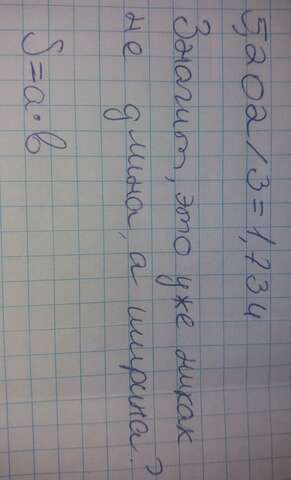 5202/3=1,734
Значит, это уже никак
не длина, а ширина?
S=a·b